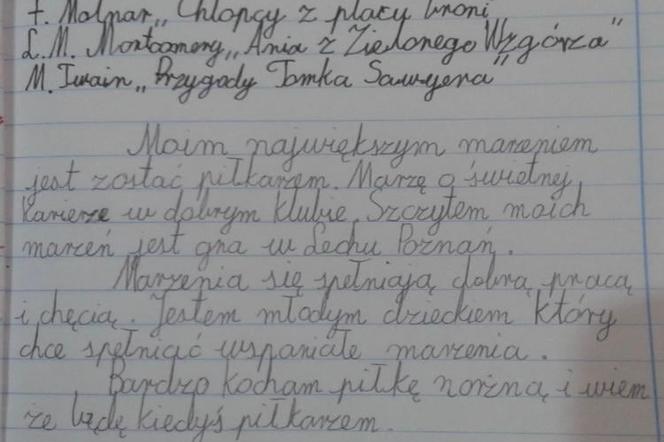 F. Molnar „Chłopcy z placu broni
L. M. Montgomery „Ania z Zielonego Wzgórza”
M. Twain „Przygody Tomka Sawyera”
Moim największym marzeniem
jest zostać piłkarzem. Marzę o świetnej
karierze w dobrym klubie. Szczytem moich
marzeń jest gra w Lechu Poznań.
Marzenia się spełniają dobrą pracą
i chęcią. Jestem młodym dzieckiem który
chce spełniać wspaniałe marzenia.
Bardzo kocham piłkę nożną i wiem
że będę kiedyś piłkarzem.